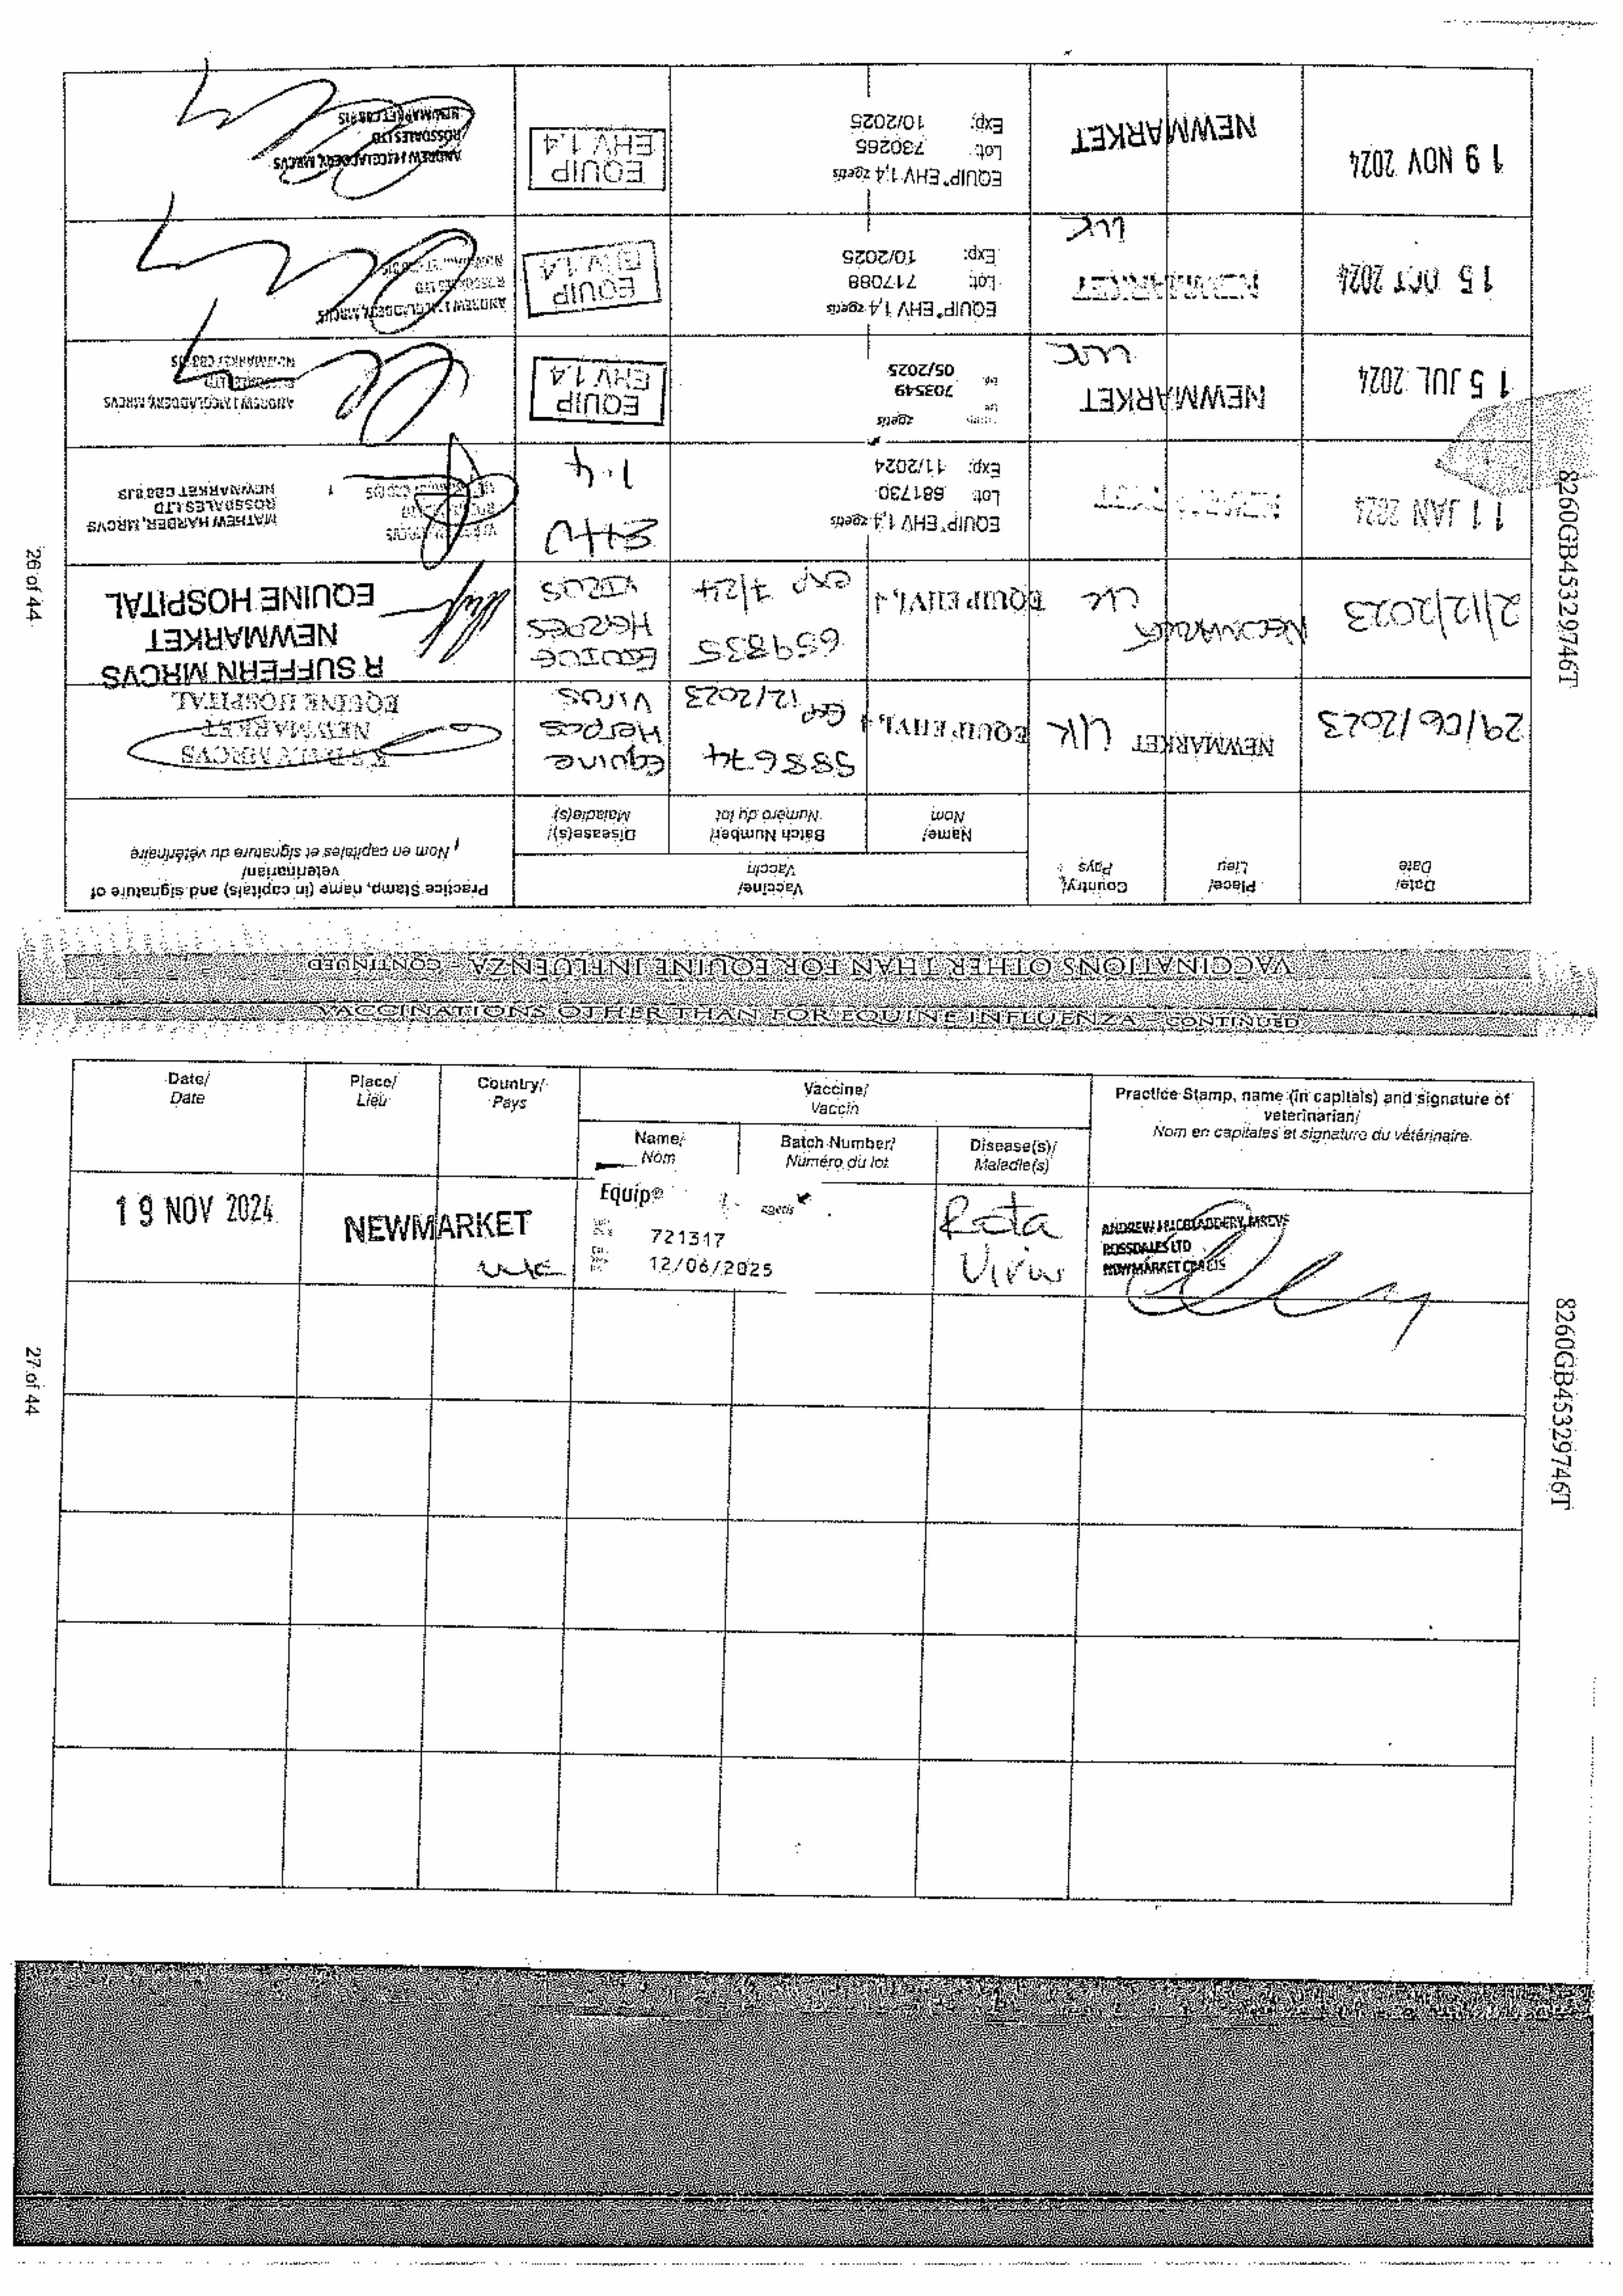 VACCINATIONS OTHER THAN FOR EQUINE INFLUENZA - CONTINUED
Date/ Date
Place/ Lieu
Country/ Pays
Vaccine/ Vaccin
Name/ Nom
Batch Number/ Numéro du lot
Disease(s)/ Maladie(s)
Practice Stamp, name (in capitals) and signature of veterinarian/
Nom en capitales et signature du vétérinaire
29/06/2023 NEWMARKET UK EQUIP EHV1,4 588674 Exp 12/2023 Equine Herpes Virus
MRCVS
NEWMARKET
EQUINE HOSPITAL
2/12/2023 NEWMARKET UK EQUIP EHV1,4 659835 exp 7/24 EQUINE HERPES VIRUS
R SUFFERN MRCVS
NEWMARKET
EQUINE HOSPITAL
11 JAN 2024
EQUIP® EHV 1,4 zoetis
Lot: 681730
Exp: 11/2024
EHV 1.4
MATHEW HARDER, MRCVS
ROSSDALES LTD
NEWMARKET CB8 8JS
15 JUL 2024 NEWMARKET UK
zoetis
703549
05/2025
EQUIP EHV 1.4
ANDREW J MCGLADDERY, MRCVS
ROSSDALES LTD
NEWMARKET CB8 8JS
15 OCT 2024 NEWMARKET UK
EQUIP® EHV 1,4 zoetis
Lot: 717088
Exp: 10/2025
EQUIP EHV 1.4
ANDREW J MCGLADDERY, MRCVS
ROSSDALES LTD
19 NOV 2024 NEWMARKET
EQUIP® EHV 1,4 zoetis
Lot: 730265
Exp: 10/2025
EQUIP EHV 1.4
ANDREW J MCGLADDERY, MRCVS
ROSSDALES LTD
NEWMARKET CB8 8JS
26 of 44
8260GB45329746T
VACCINATIONS OTHER THAN FOR EQUINE INFLUENZA - CONTINUED
Date/ Date
Place/ Lieu
Country/ Pays
Vaccine/ Vaccin
Name/ Nom
Batch Number/ Numéro du lot
Disease(s)/ Maladie(s)
Practice Stamp, name (in capitals) and signature of veterinarian/
Nom en capitales et signature du vétérinaire.
19 NOV 2024 NEWMARKET UK
Equip® zoetis
721317
12/06/2025
Rota Virus
ANDREW J MCGLADDERY, MRCVS
ROSSDALES LTD
NEWMARKET CB8 8JS
27 of 44
8260GB45329746T